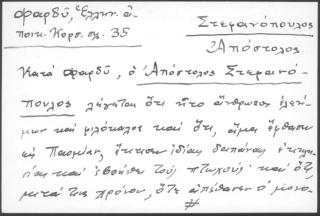 Φαρδῦ, Ἑλλην. ἀ-
ποικ. Κορσ. σλ. 35
Στεφανόπουλος
Ἀπόστολος
Κατὰ Φαρδῦ, ὁ Ἀπόστολος Στεφανό-
πουλος λέγεται ὅτι ἦτο ἄνθρωπος ἐλεή-
μων καὶ φιλόκαλος καὶ ὅτι, ἅμα ἔφθασεν
εἰς Παομίαν, ἔκτισεν ἰδίᾳ δαπάνῃ ἐκκλη-
σίαν καὶ ἐβοήθει τοὺς πτωχοὺς καὶ ὅτι
μετά τινα χρόνον, ὅτε ἀπέθανεν ὁ μονο-
#